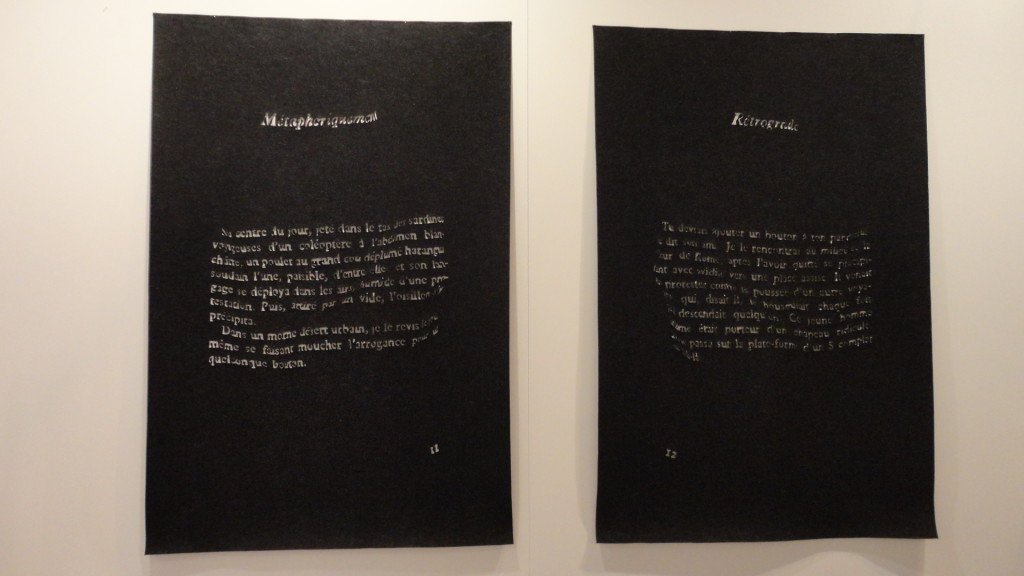 Métaphoriquement
centre du jour, jeté dans le tas des sardines
voyageuses d'un coléoptère à l'abdomen blan-
châtre, un poulet au grand cou déplumé harangua
soudain l'une, paisible, d'entre elles et son lan-
gage se déploya dans les airs, humide d'une pro-
testation. Puis, attiré par un vide, l'oisillon s'y
précipita.
Dans un morne désert urbain, je le revis
même se faisant moucher l'arrogance pour un
quelconque bouton.
11
Rétrograde
Tu devrais ajouter un bouton à ton pardessus
dit son ami. Je le rencontrai au milieu de la
Cour de Rome, après l'avoir quitté se précipi-
tant avec avidité vers une place assise. Il venait
protester contre la poussée d'un autre voya-
qui, disait-il, le bousculait chaque fois
descendait quelqu'un. Ce jeune homme
était porteur d'un chapeau ridicule.
passa sur la plate-forme d'un S complet
12